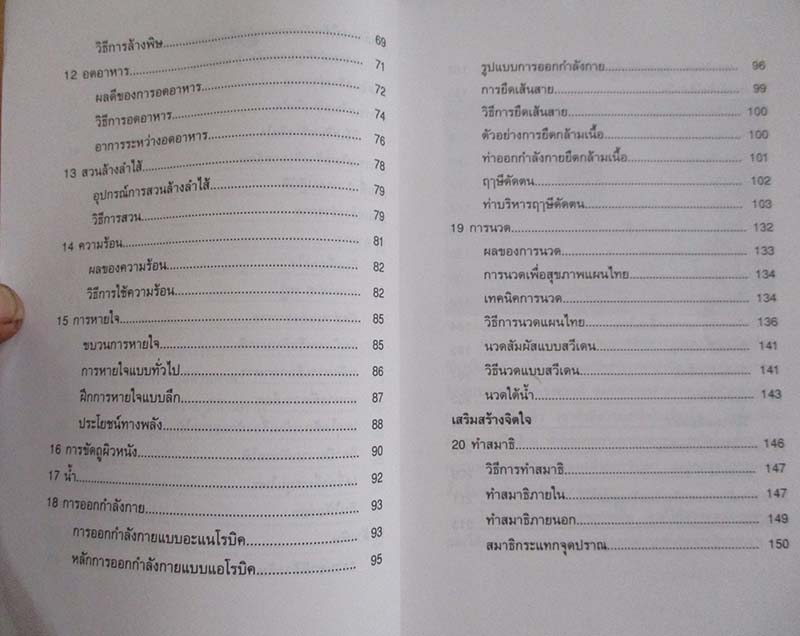 วิธีการล้างพิษ........................................69
12 อดอาหาร........................................71
ผลดีของการอดอาหาร........................................72
วิธีการอดอาหาร........................................74
อาการระหว่างอดอาหาร........................................76
13 สวนล้างลำไส้........................................78
อุปกรณ์การสวนล้างลำไส้........................................79
วิธีการสวน........................................79
14 ความร้อน........................................81
ผลของความร้อน........................................82
วิธีการใช้ความร้อน........................................82
15 การหายใจ........................................85
ขบวนการหายใจ........................................85
การหายใจแบบทั่วไป........................................86
ฝึกการหายใจแบบลึก........................................87
ประโยชน์ทางพลัง........................................88
16 การขัดถูผิวหนัง........................................90
17 น้ำ........................................92
18 การออกกำลังกาย........................................93
การออกกำลังกายแบบอะแนโรบิค........................................93
หลักการออกกำลังกายแบบแอโรบิค........................................95
รูปแบบการออกกำลังกาย........................................96
การยืดเส้นสาย........................................99
วิธีการยืดเส้นสาย........................................100
ตัวอย่างการยืดกล้ามเนื้อ........................................100
ท่าออกกำลังกายยืดกล้ามเนื้อ........................................101
ฤๅษีดัดตน........................................102
ท่าบริหารฤๅษีดัดตน........................................103
19 การนวด........................................132
ผลของการนวด........................................133
การนวดเพื่อสุขภาพแผนไทย........................................134
เทคนิคการนวด........................................134
วิธีการนวดแผนไทย........................................136
นวดสัมผัสแบบสวีเดน........................................141
วิธีนวดแบบสวีเดน........................................141
นวดใต้น้ำ........................................143
เสริมสร้างจิตใจ
20 ทำสมาธิ........................................146
วิธีการทำสมาธิ........................................147
ทำสมาธิภายใน........................................147
ทำสมาธิภายนอก........................................149
สมาธิกระแทกจุดปราณ........................................150